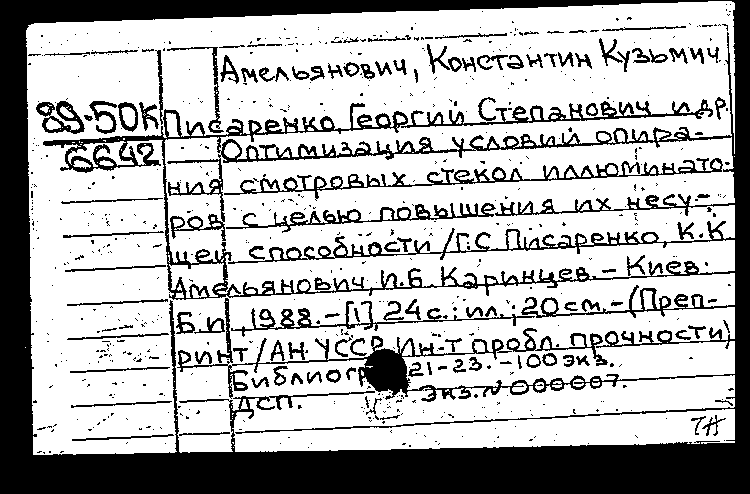 Амельянович, Константин Кузьмич
89-50К
6642
Писаренко, Георгий Степанович и др
Оптимизация условий опира-
ния смотровых стекол иллюминато-
ров с целью повышения их несу-
щей способности / Г.С Писаренко, К.К
Амельянович, И.Б. Каринцев. – Киев:
Б.и, 1988. – [1], 24 с.: ил.; 20 см. – (Преп-
ринт / АН УССР Ин-т пробл. прочности)
Библиогр 21-23. – 100 экз.
ДСП. Экз. № 000007.